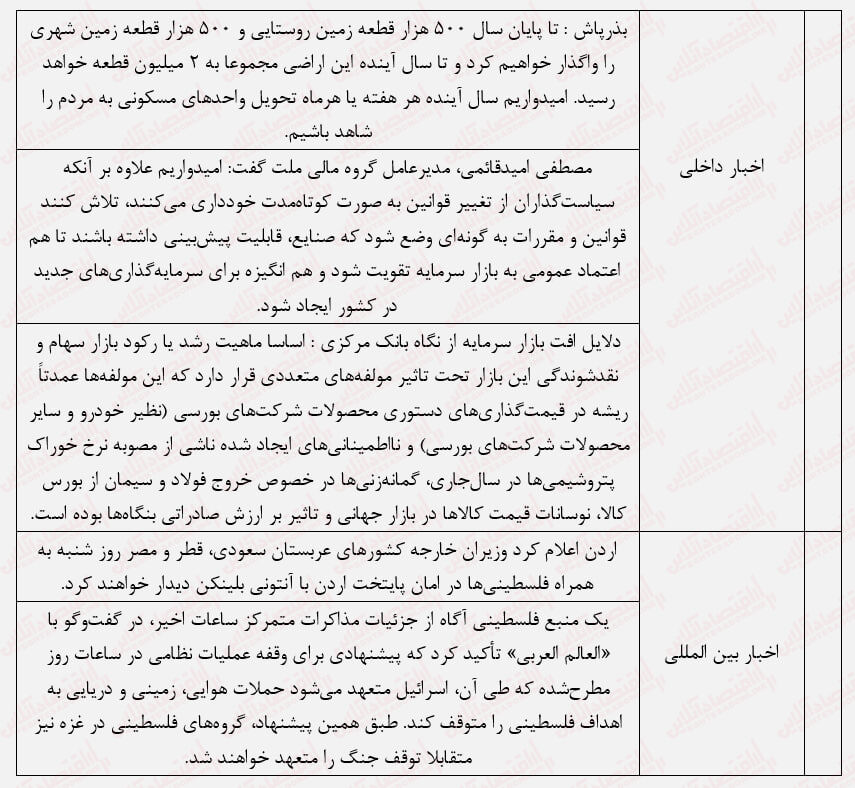 اخبار داخلی
بذرپاش : تا پایان سال ۵۰۰ هزار قطعه زمین روستایی و ۵۰۰ هزار قطعه زمین شهری
را واگذار خواهیم کرد و تا سال آینده این اراضی مجموعا به ۲ میلیون قطعه خواهد
رسید. امیدواریم سال آینده هر هفته یا هرماه تحویل واحدهای مسکونی به مردم را
شاهد باشیم.
مصطفی امیدقائمی، مدیرعامل گروه مالی ملت گفت: امیدواریم علاوه بر آنکه
سیاست‌گذاران از تغییر قوانین به صورت کوتاه‌مدت خودداری می‌کنند، تلاش کنند
قوانین و مقررات به گونه‌ای وضع شود که صنایع، قابلیت پیش‌بینی داشته باشند تا هم
اعتماد عمومی به بازار سرمایه تقویت شود و هم انگیزه برای سرمایه‌گذاری‌های جدید
در کشور ایجاد شود.
دلایل افت بازار سرمایه از نگاه بانک مرکزی : اساسا ماهیت رشد یا رکود بازار سهام و
نقدشوندگی این بازار تحت تاثیر مولفه‌های متعددی قرار دارد که این مولفه‌ها عمدتاً
ریشه در قیمت‌گذاری‌های دستوری محصولات شرکت‌های بورسی (نظیر خودرو و سایر
محصولات شرکت‌های بورسی) و نااطمینانی‌های ایجاد شده ناشی از مصوبه نرخ خوراک
پتروشیمی‌ها در سال‌جاری، گمانه‌زنی‌ها در خصوص خروج فولاد و سیمان از بورس
کالا، نوسانات قیمت کالاها در بازار جهانی و تاثیر بر ارزش صادراتی بنگاه‌ها بوده است.
اخبار بین المللی
اردن اعلام کرد وزیران خارجه کشورهای عربستان سعودی، قطر و مصر روز شنبه به
همراه فلسطینی‌ها در امان پایتخت اردن با آنتونی بلینکن دیدار خواهند کرد.
یک منبع فلسطینی آگاه از جزئیات مذاکرات متمرکز ساعات اخیر، در گفت‌وگو با
«العالم العربی» تأکید کرد که پیشنهادی برای وقفه عملیات نظامی در ساعات روز
مطرح‌شده که طی آن، اسرائیل متعهد می‌شود حملات هوایی، زمینی و دریایی به
اهداف فلسطینی را متوقف کند. طبق همین پیشنهاد، گروه‌های فلسطینی در غزه نیز
متقابلا توقف جنگ را متعهد خواهند شد.